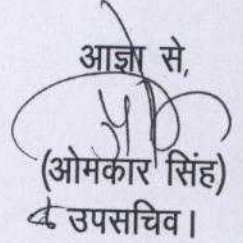 आज्ञा से,
(ओमकार सिंह)
उपसचिव।